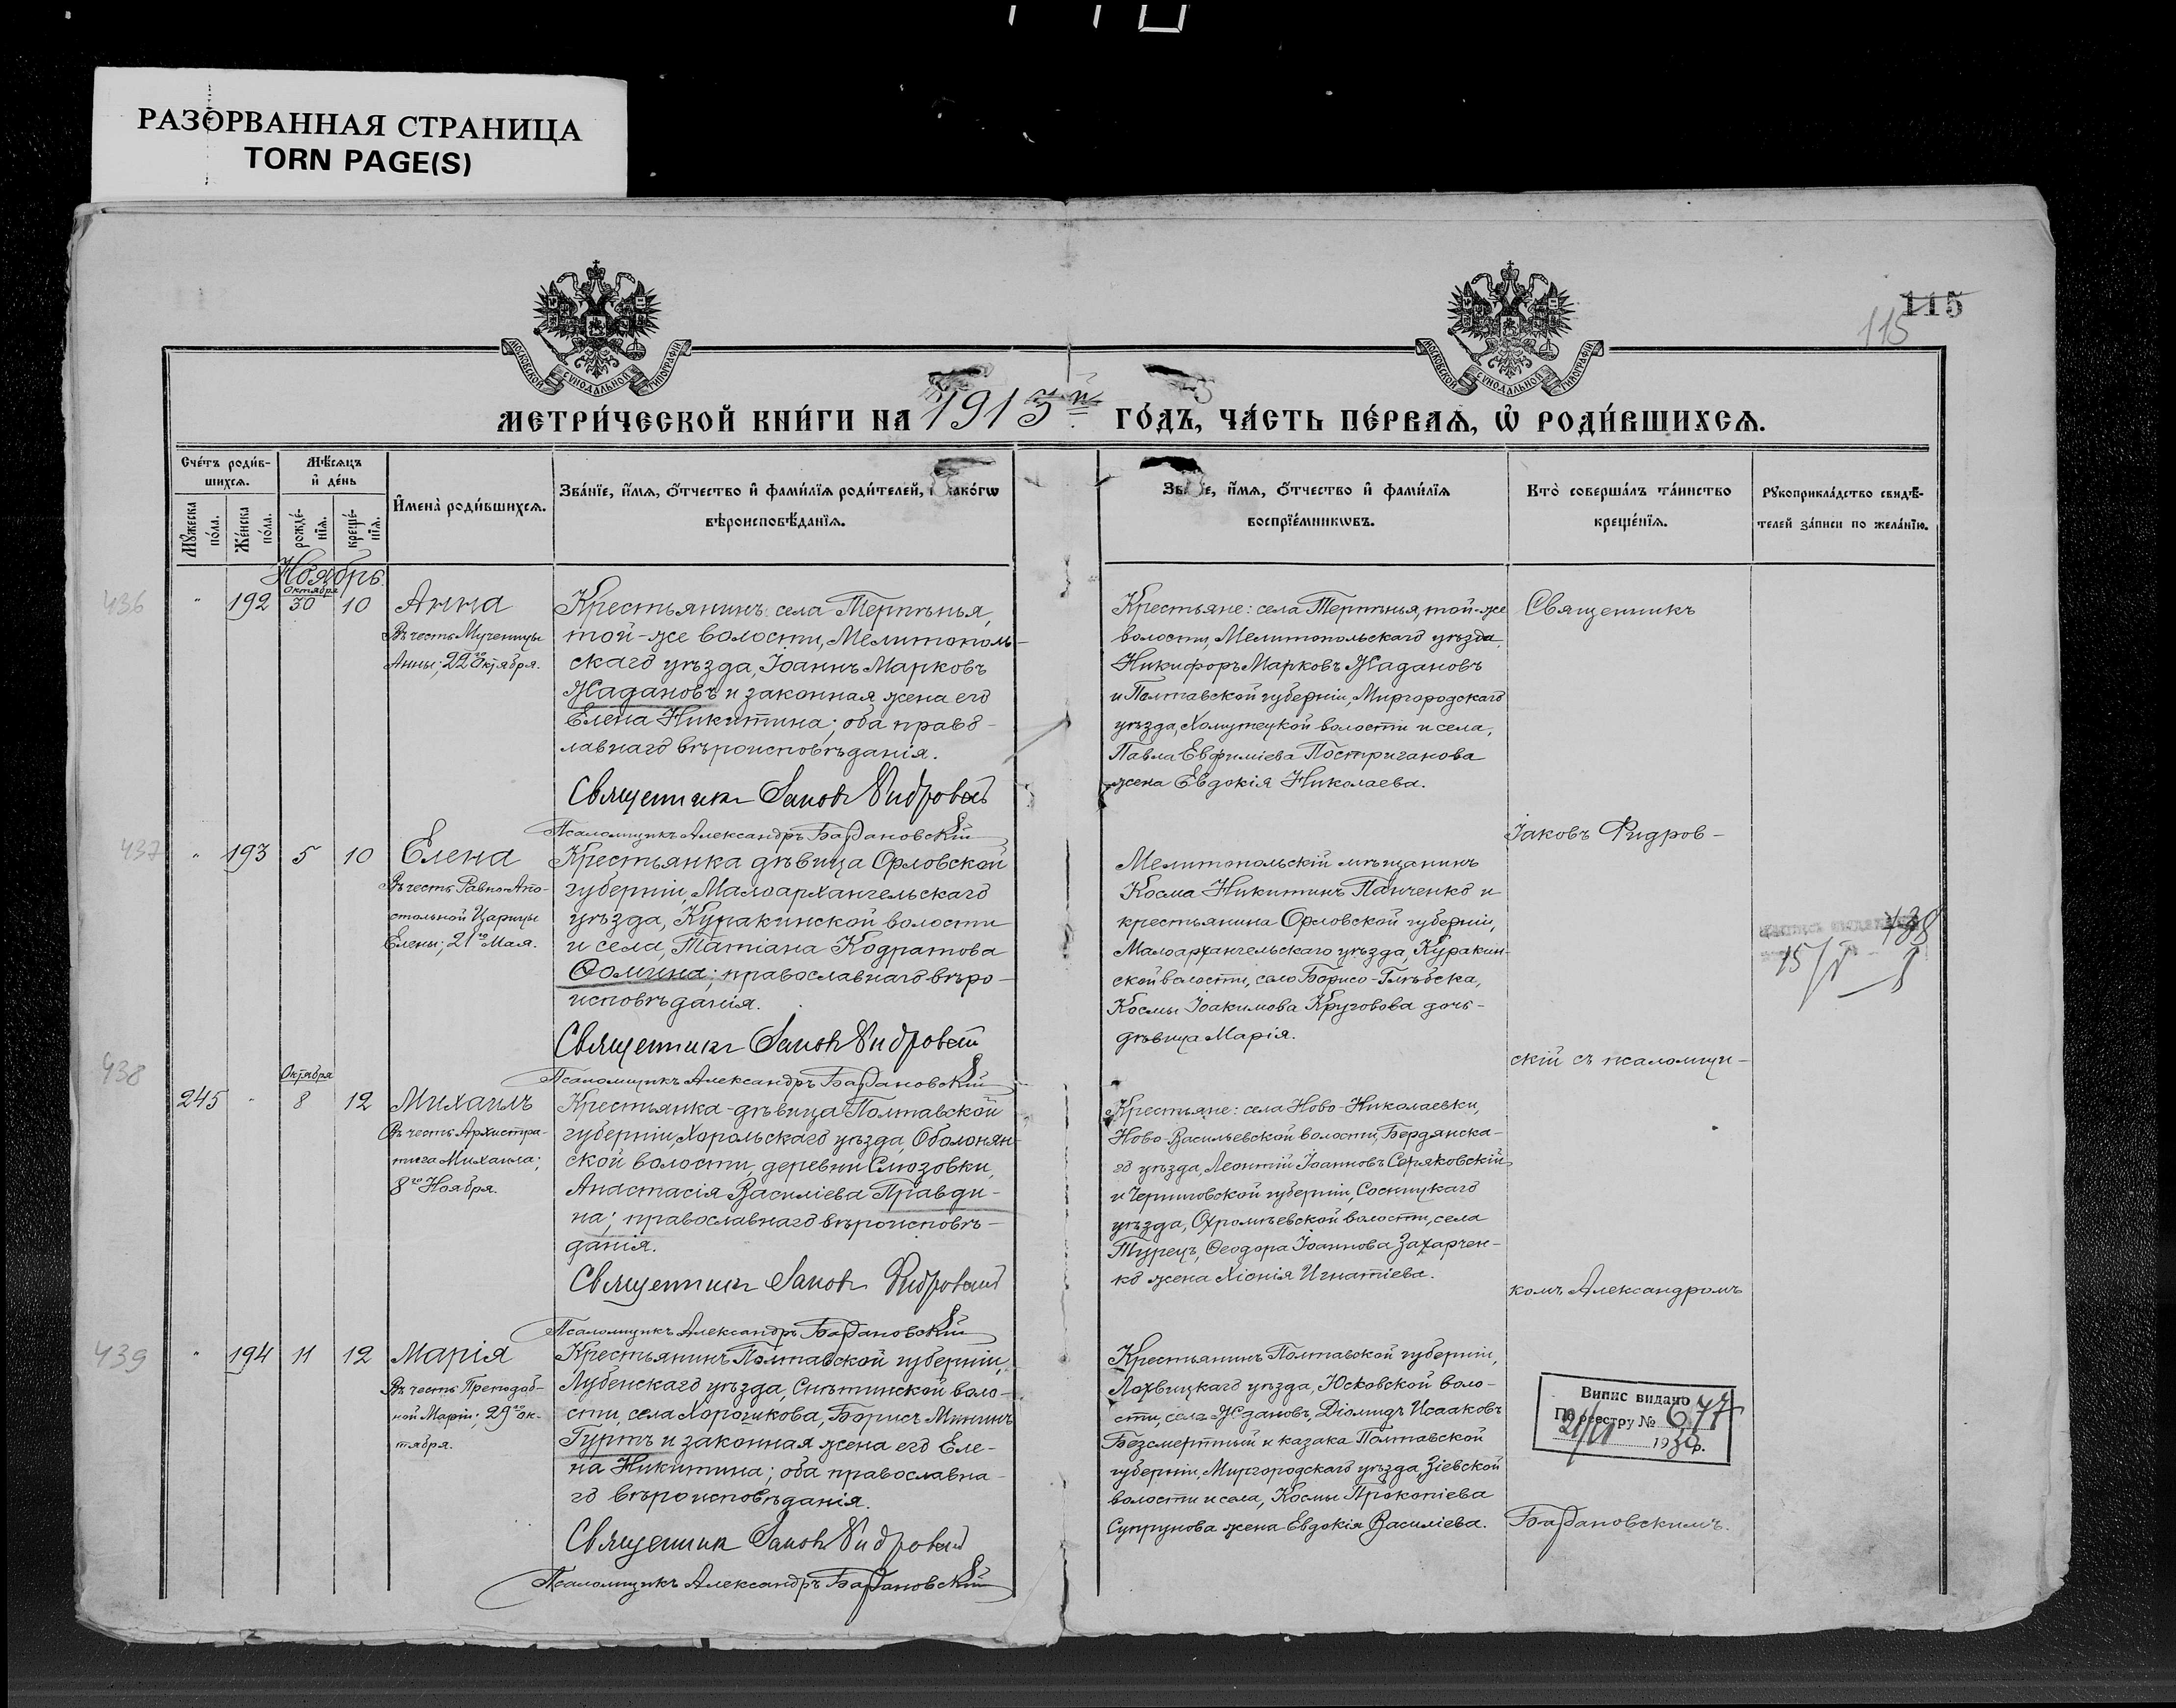 РАЗОРВАННАЯ СТРАНИЦА
TORN PAGE(S)
115
115
МОСКОВСКОЙ СѴНОДАЛЬНОЙ ТИПОГРАФІИ
МОСКОВСКОЙ СѴНОДАЛЬНОЙ ТИПОГРАФІИ
МЕТРИ́ЧЕСКОЙ КНИ́ГИ НА 1913й ГО́ДЪ, ЧА́СТЬ ПЕ́РВАѦ, Ѽ РОДИ́ВШИХСѦ.
Сче́тъ роди́в-
шихсѧ.
Мꙋ́жеска по́ла.
Же́нска по́ла.
Мѣ́сѧцъ
и де́нь
рожде́-
нїѧ.
креще́-
нїѧ.
И҆мена̀ роди́вшихсѧ.
Зва́нїе, и҆́мѧ, ѻ҆́тчество и҆ фами́лїѧ роди́телей, и҆ како́гѡ
вѣроисповѣ́данїѧ.
Зва́нїе, и҆́мѧ, ѻ҆́тчество и҆ фами́лїѧ
воспрїе́мникѡвъ.
Кто̀ соверша́лъ та́инство
креще́нїѧ.
Рꙋкоприкла́дство свидѣ́-
телей за́писи по жела́нїю.
Ноябрь.
436
"
192
Октября
30
10
Анна
Въ честь Мученицы
Анны; 22го Октября.
Крестьянинъ села Терпѣнья,
той-же волости, Мелитополь-
скаго уѣзда, Іоаннъ Марковъ
Жадановъ и законная жена его
Елена Никитина; оба право-
лавнаго вѣроисповѣданія.
Священникъ Іаковъ Фидровскій
Псаломщикъ Александръ Баздановскій
Крестьяне: села Терпѣнья, той-же
волости, Мелитопольскаго уѣзда,
Никифоръ Марковъ Жадановъ
и Полтавской губерніи, Миргородскаго
уѣзда, Хомутецкой волости и села,
Павла Евфиміева Постриганова
жена Евдокія Николаева.
Священникъ
437
"
193
5
10
Елена
Въ честь Равно-Апо-
стольной Царицы
Елены; 21го Мая.
Крестьянка дѣвица Орловской
губерніи, Малоархангельскаго
уѣзда, Куракинской волости
и села, Татіана Кодратова
Ѳомина; православнаго вѣро-
исповѣданія.
Священникъ Іаковъ Фидровскій
Псаломщикъ Александръ Баздановскій
Мелитопольскій мѣщанинъ
Косма Никитинъ Панченко и
крестьянина Орловской губерніи,
Малоархангельскаго уѣзда, Куракин-
ской волости, село Борисо-Глѣбска,
Космы Іоакимова Круговова дочь-
дѣвица Марія.
Іаковъ Фидров-
138
15/I
438
245
"
Октября
8
12
Михаилъ
Въ честь Архистра-
тига Михаила;
8го Ноября.
Крестьянка-дѣвица Полтавской
губерніи, Хорольскаго уѣзда, Оболонян-
ской волости, деревни Слюзовки,
Анастасія Василіева Правди-
на; православнаго вѣроисповѣ-
данія.
Священникъ Іаковъ Фидровскій
Псаломщикъ Александръ Баздановскій
Крестьяне: села Ново-Николаевки,
Ново-Васильевской волости, Бердянска-
го уѣзда, Леонтій Іоанновъ Серяковскій
и Черниговской губерніи, Сосницкаго
уѣзда, Охромѣевской волости, села
Турецъ, Ѳеодора Іоаннова Захарчен-
ко жена Хіонія Игнатіева.
скій съ псаломщи-
комъ Александромъ
439
"
194
11
12
Марія
Въ честь Преподоб-
ной Маріи; 29го Ок-
тября.
Крестьянинъ Полтавской губерніи,
Лубенскаго уѣзда, Снѣтинской воло-
сти, села Хорошкова, Борисъ Мининъ
Гуртъ и законная жена его Еле-
на Никитина; оба православна-
го вѣроисповѣданія.
Священникъ Іаковъ Фидровскій
Псаломщикъ Александръ Баздановскій
Крестьянинъ Полтавской губерніи,
Лохвицкаго уѣзда, Юсковской воло-
сти, села Ждановъ, Діомидъ Исааковъ
Безсмертный и казака Полтавской
губерніи, Миргородскаго уѣзда, Зіевской
волости и села, Космы Прокопіева
Супрунова жена Евдокія Василіева.
Випис видано
По реестру № 677
21/VI 1930р.
Баздановскимъ.